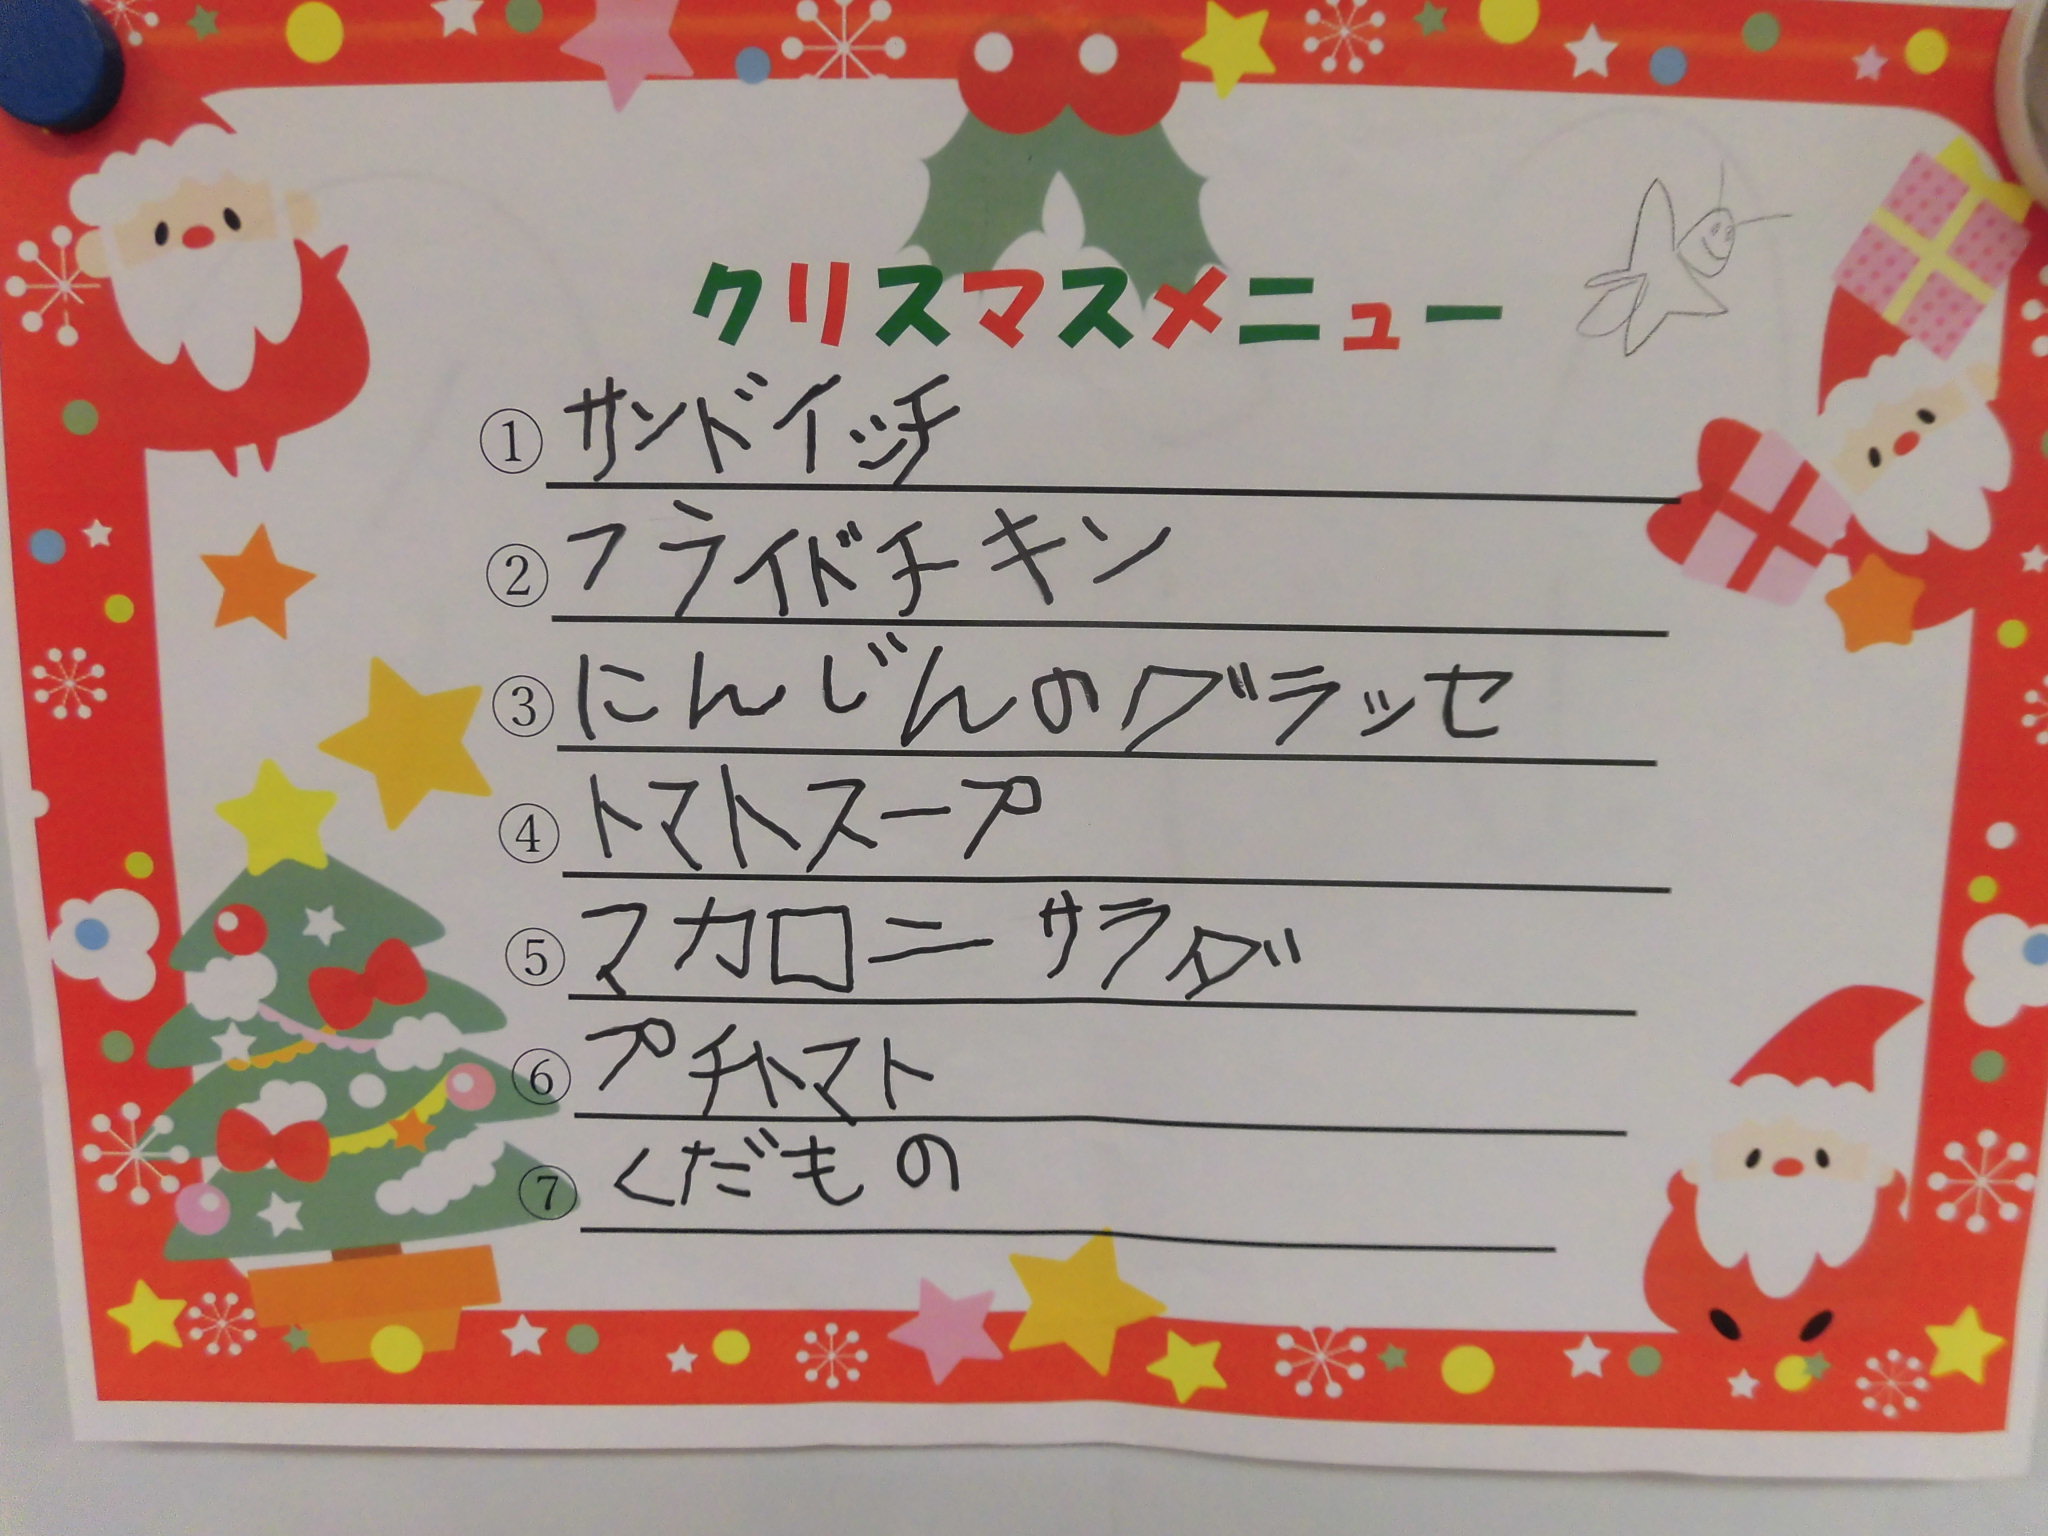 クリスマスメニュー
① サンドイッチ
② フライドチキン
③ にんじんのグラッセ
④ トマトスープ
⑤ マカロニーサラダ
⑥ プチトマト
⑦ くだもの